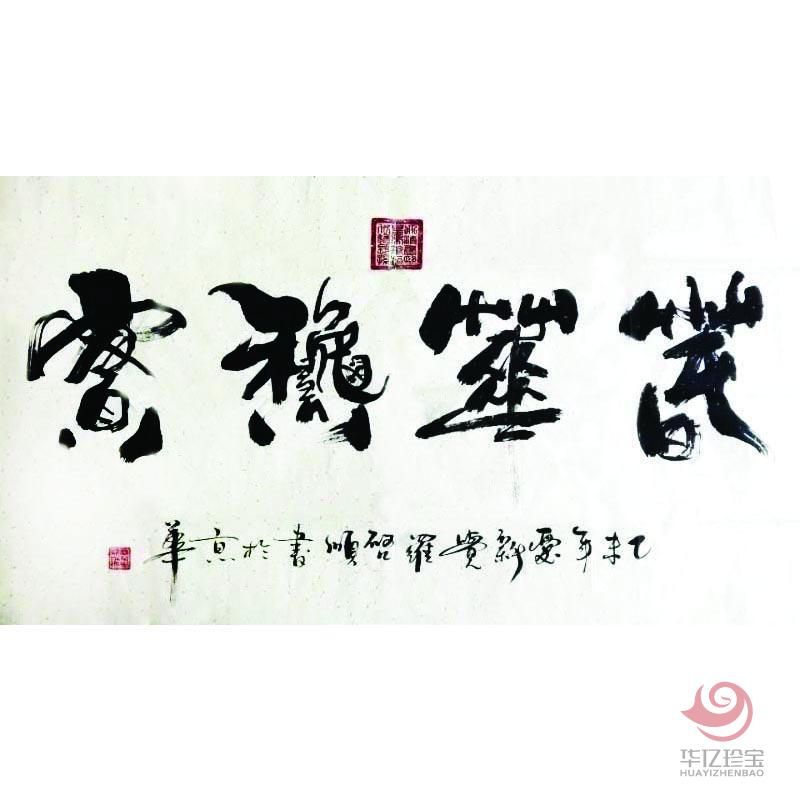 萅華龝實
乙未年愛新覺羅啓順書於京華
华亿珍宝
HUAYIZHENBAO